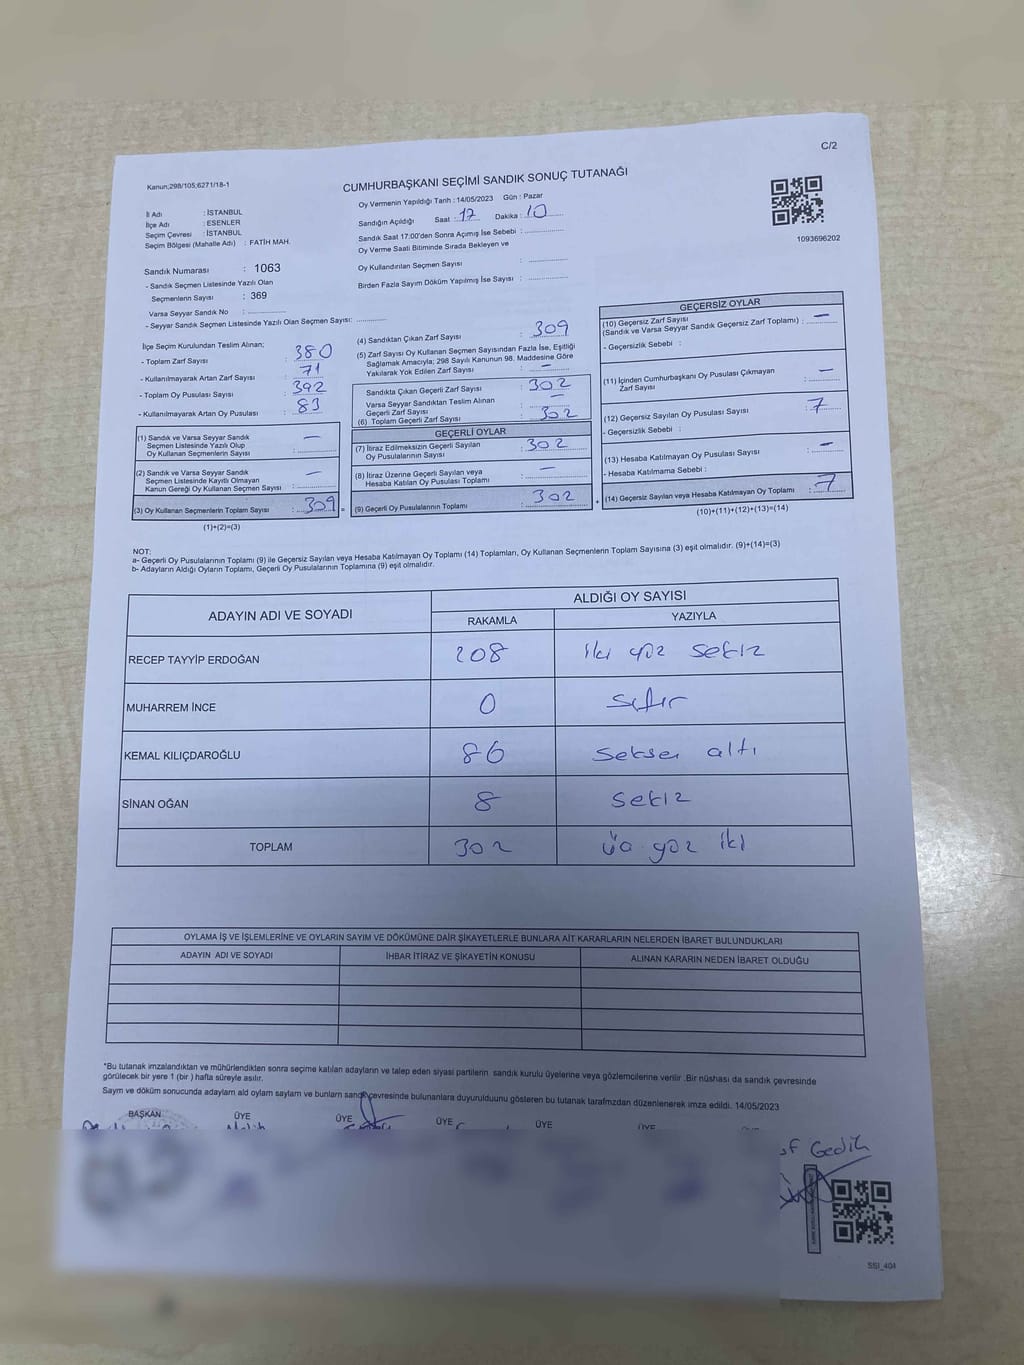 C/2
Kanun;298/105;6271/18-1
CUMHURBAŞKANI SEÇİMİ SANDIK SONUÇ TUTANAĞI
İl Adı : İSTANBUL
İlçe Adı : ESENLER
Seçim Çevresi : İSTANBUL
Seçim Bölgesi (Mahalle Adı) : FATİH MAH.
Sandık Numarası : 1063
- Sandık Seçmen Listesinde Yazılı Olan
Seçmenlerin Sayısı : 369
Varsa Seyyar Sandık No :
- Seyyar Sandık Seçmen Listesinde Yazılı Olan Seçmen Sayısı:
Oy Vermenin Yapıldığı Tarih : 14/05/2023 Gün : Pazar
Sandığın Açıldığı Saat : 17 Dakika : 10
Sandık Saat 17:00'den Sonra Açımış İse Sebebi :
Oy Verme Saati Bitiminde Sırada Bekleyen ve
Oy Kullandırılan Seçmen Sayısı :
Birden Fazla Sayım Döküm Yapılmış İse Sayısı :
1093696202
İlçe Seçim Kurulundan Teslim Alınan;
- Toplam Zarf Sayısı : 380
- Kullanılmayarak Artan Zarf Sayısı : 71
- Toplam Oy Pusulası Sayısı : 392
- Kullanılmayarak Artan Oy Pusulası : 83
(1) Sandık ve Varsa Seyyar Sandık
Seçmen Listesinde Yazılı Olup
Oy Kullanan Seçmenlerin Sayısı : —
(2) Sandık ve Varsa Seyyar Sandık
Seçmen Listesinde Kayıtlı Olmayan
Kanun Gereği Oy Kullanan Seçmen Sayısı : —
(3) Oy Kullanan Seçmenlerin Toplam Sayısı : 309 =
(1)+(2)=(3)
(4) Sandıktan Çıkan Zarf Sayısı : 309
(5) Zarf Sayısı Oy Kullanan Seçmen Sayısından Fazla İse, Eşitliği
Sağlamak Amacıyla; 298 Sayılı Kanunun 98. Maddesine Göre
Yakılarak Yok Edilen Zarf Sayısı : —
Sandıkta Çıkan Geçerli Zarf Sayısı : 302
Varsa Seyyar Sandıktan Teslim Alınan
Geçerli Zarf Sayısı : —
(6) Toplam Geçerli Zarf Sayısı : 302
GEÇERLİ OYLAR
(7) İtiraz Edilmeksizin Geçerli Sayılan
Oy Pusulalarının Sayısı : 302
(8) İtiraz Üzerine Geçerli Sayılan veya
Hesaba Katılan Oy Pusulası Toplamı : —
(9) Geçerli Oy Pusulalarının Toplamı : 302 +
GEÇERSİZ OYLAR
(10) Geçersiz Zarf Sayısı
(Sandık ve Varsa Seyyar Sandık Geçersiz Zarf Toplamı) : —
- Geçersizlik Sebebi :
(11) İçinden Cumhurbaşkanı Oy Pusulası Çıkmayan
Zarf Sayısı : —
(12) Geçersiz Sayılan Oy Pusulası Sayısı : 7
- Geçersizlik Sebebi :
(13) Hesaba Katılmayan Oy Pusulası Sayısı : —
- Hesaba Katılmama Sebebi :
(14) Geçersiz Sayılan veya Hesaba Katılmayan Oy Toplamı : 7
(10)+(11)+(12)+(13)=(14)
NOT:
a- Geçerli Oy Pusulalarının Toplamı (9) ile Geçersiz Sayılan veya Hesaba Katılmayan Oy Toplamı (14) Toplamları, Oy Kullanan Seçmenlerin Toplam Sayısına (3) eşit olmalıdır. (9)+(14)=(3)
b- Adayların Aldığı Oyların Toplamı, Geçerli Oy Pusulalarının Toplamına (9) eşit olmalıdır.
ADAYIN ADI VE SOYADI ALDIĞI OY SAYISI
RAKAMLA YAZIYLA
RECEP TAYYİP ERDOĞAN 208 iki yüz sekiz
MUHARREM İNCE 0 sıfır
KEMAL KILIÇDAROĞLU 86 seksen altı
SİNAN OĞAN 8 sekiz
TOPLAM 302 üç yüz iki
OYLAMA İŞ VE İŞLEMLERİNE VE OYLARIN SAYIM VE DÖKÜMÜNE DAİR ŞİKAYETLERLE BUNLARA AİT KARARLARIN NELERDEN İBARET BULUNDUKLARI
ADAYIN ADI VE SOYADI İHBAR İTİRAZ VE ŞİKAYETİN KONUSU ALINAN KARARIN NEDEN İBARET OLDUĞU
*Bu tutanak imzalandıktan ve mühürlendikten sonra seçime katılan adayların ve talep eden siyasi partilerin sandık kurulu üyelerine veya gözlemcilerine verilir .Bir nüshası da sandık çevresinde
görülecek bir yere 1 (bir ) hafta süreyle asılır.
Sayım ve döküm sonucunda adayların ald oyların sayları ve bunların sandık çevresinde bulunanlara duyurulduunu gösteren bu tutanak tarafmzdan düzenlenerek imza edildi. 14/05/2023
BAŞKAN ÜYE ÜYE ÜYE ÜYE ÜYE
Gedik
SSI_404